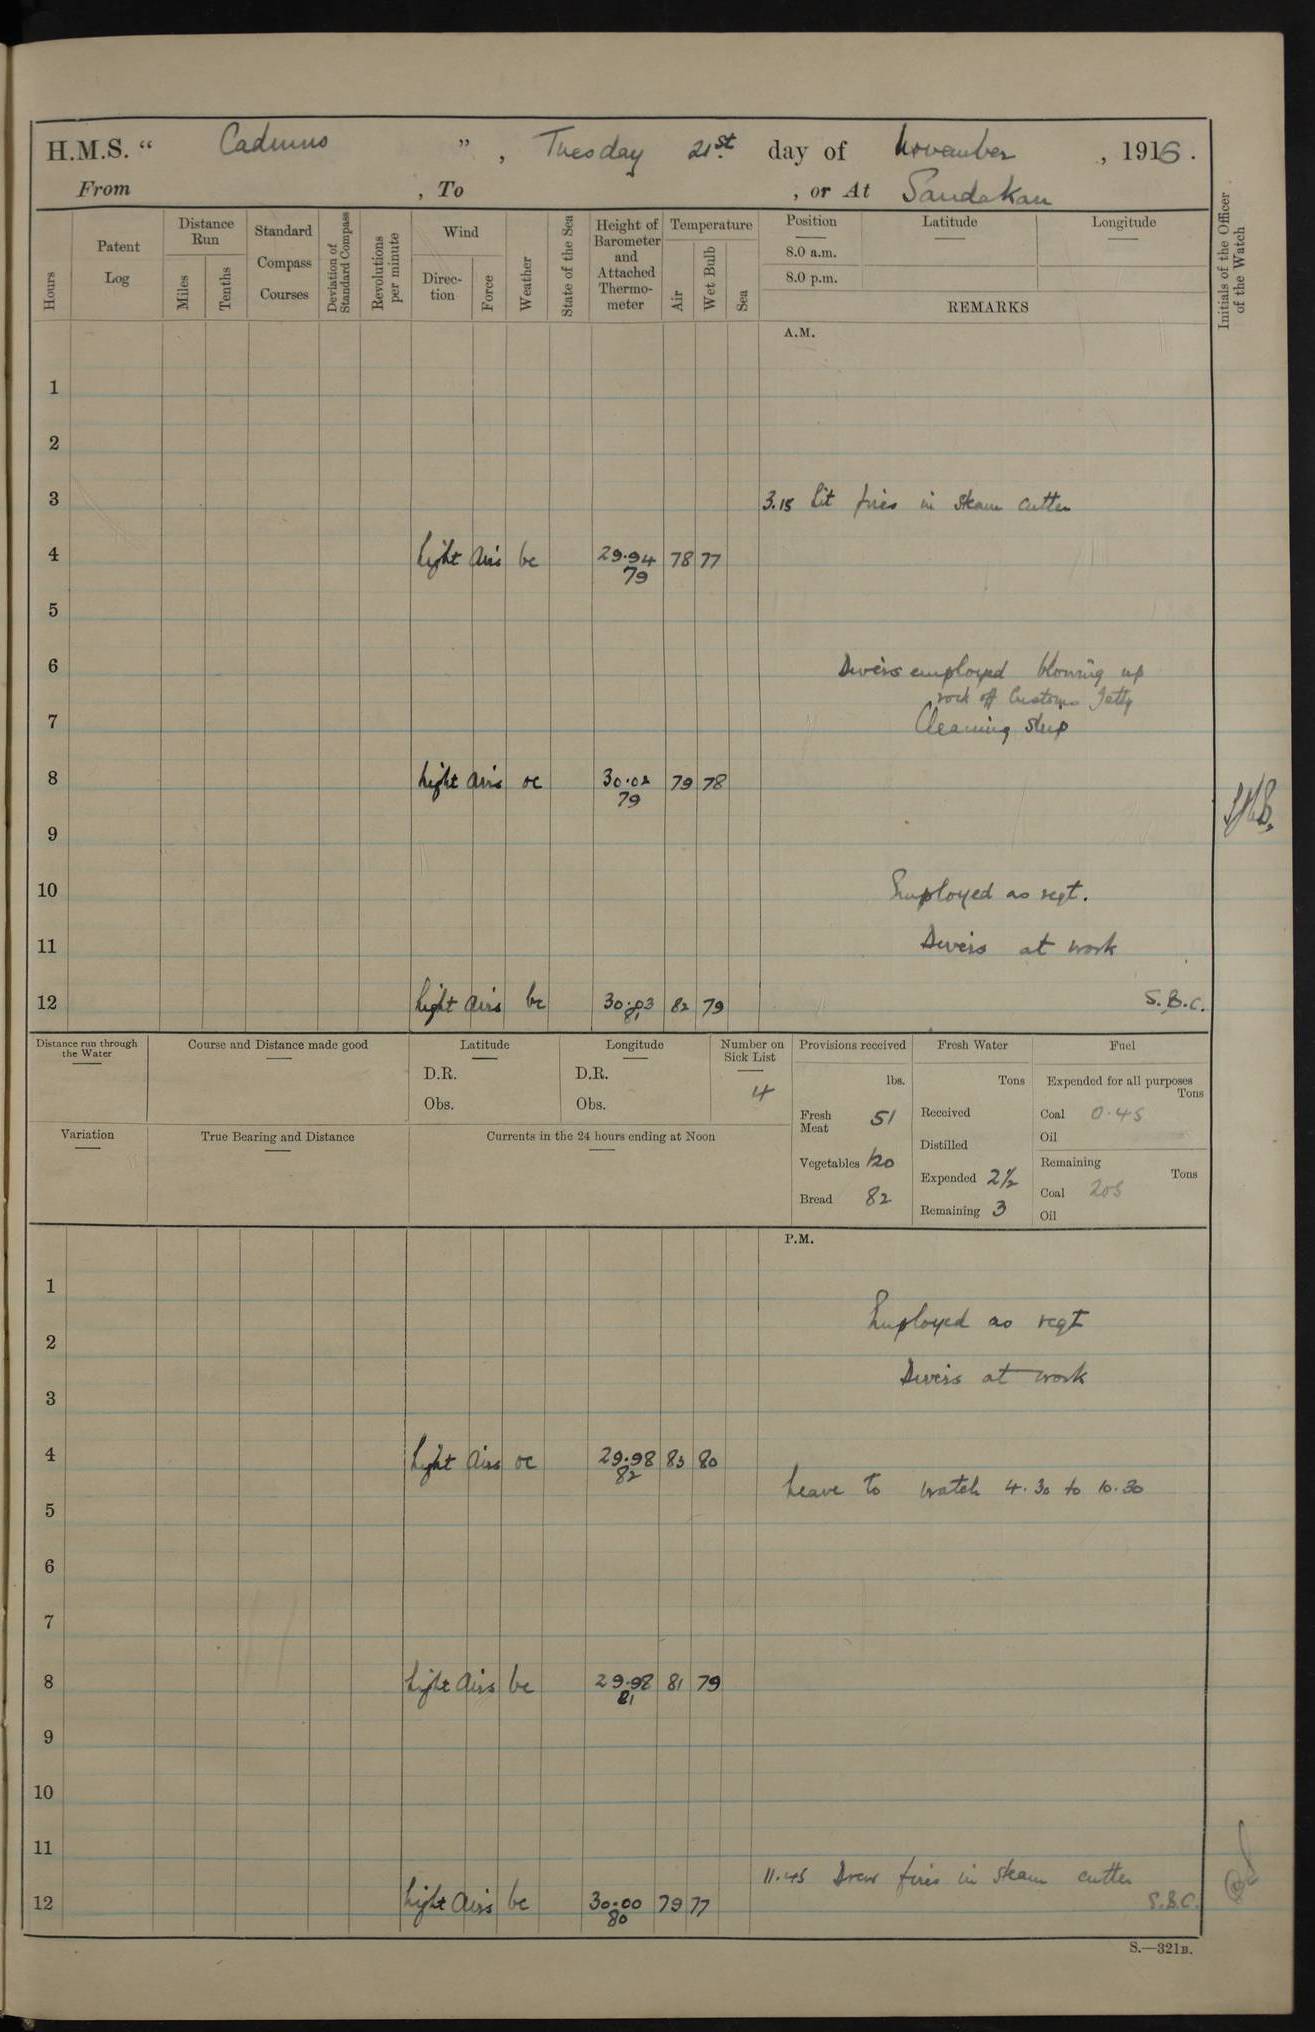 H.M.S. “ Cadmus ” , Tuesday 21st day of November , 1916 .
From , To , or At Sandakan
Hours
Patent Log
Distance Run
Miles
Tenths
Standard Compass Courses
Deviation of Standard Compass
Revolutions per minute
Wind
Direction
Force
Weather
State of the Sea
Height of Barometer and Attached Thermo-meter
Temperature
Air
Wet Bulb
Sea
Position
8.0 a.m.
8.0 p.m.
Latitude
Longitude
REMARKS
Initials of the Officer of the Watch
A.M.
1
2
3 3.15 Lit fires in steam cutter
4 Light Airs bc 29.94 78 77
79
5
6 Divers employed blowing up
rock off Customs Jetty
7 Cleaning ship
8 Light airs oc 30.02 79 78
79
9
10 Employed as reqt.
11 Divers at work
12 Light airs bc 30.03 82 79 S.B.C.
81
Distance run through the Water
Course and Distance made good
Latitude
D.R.
Obs.
Longitude
D.R.
Obs.
Number on Sick List
4
Provisions received
lbs.
Fresh Meat 51
Vegetables 120
Bread 82
Fresh Water
Tons
Received
Distilled
Expended 2½
Remaining 3
Fuel
Expended for all purposes
Tons
Coal 0.45
Oil
Remaining
Tons
Coal 205
Oil
Variation
True Bearing and Distance
Currents in the 24 hours ending at Noon
P.M.
1
Employed as reqt
2
Divers at work
3
4 Light Airs oc 29.98 83 80
82
Leave to watch 4.30 to 10.30
5
6
7
8 Light Airs bc 29.98 81 79
81
9
10
11
11.45 Drew fires in steam cutter
12 Light Airs bc 30.00 79 77 S.B.C.
80
S.—321B.